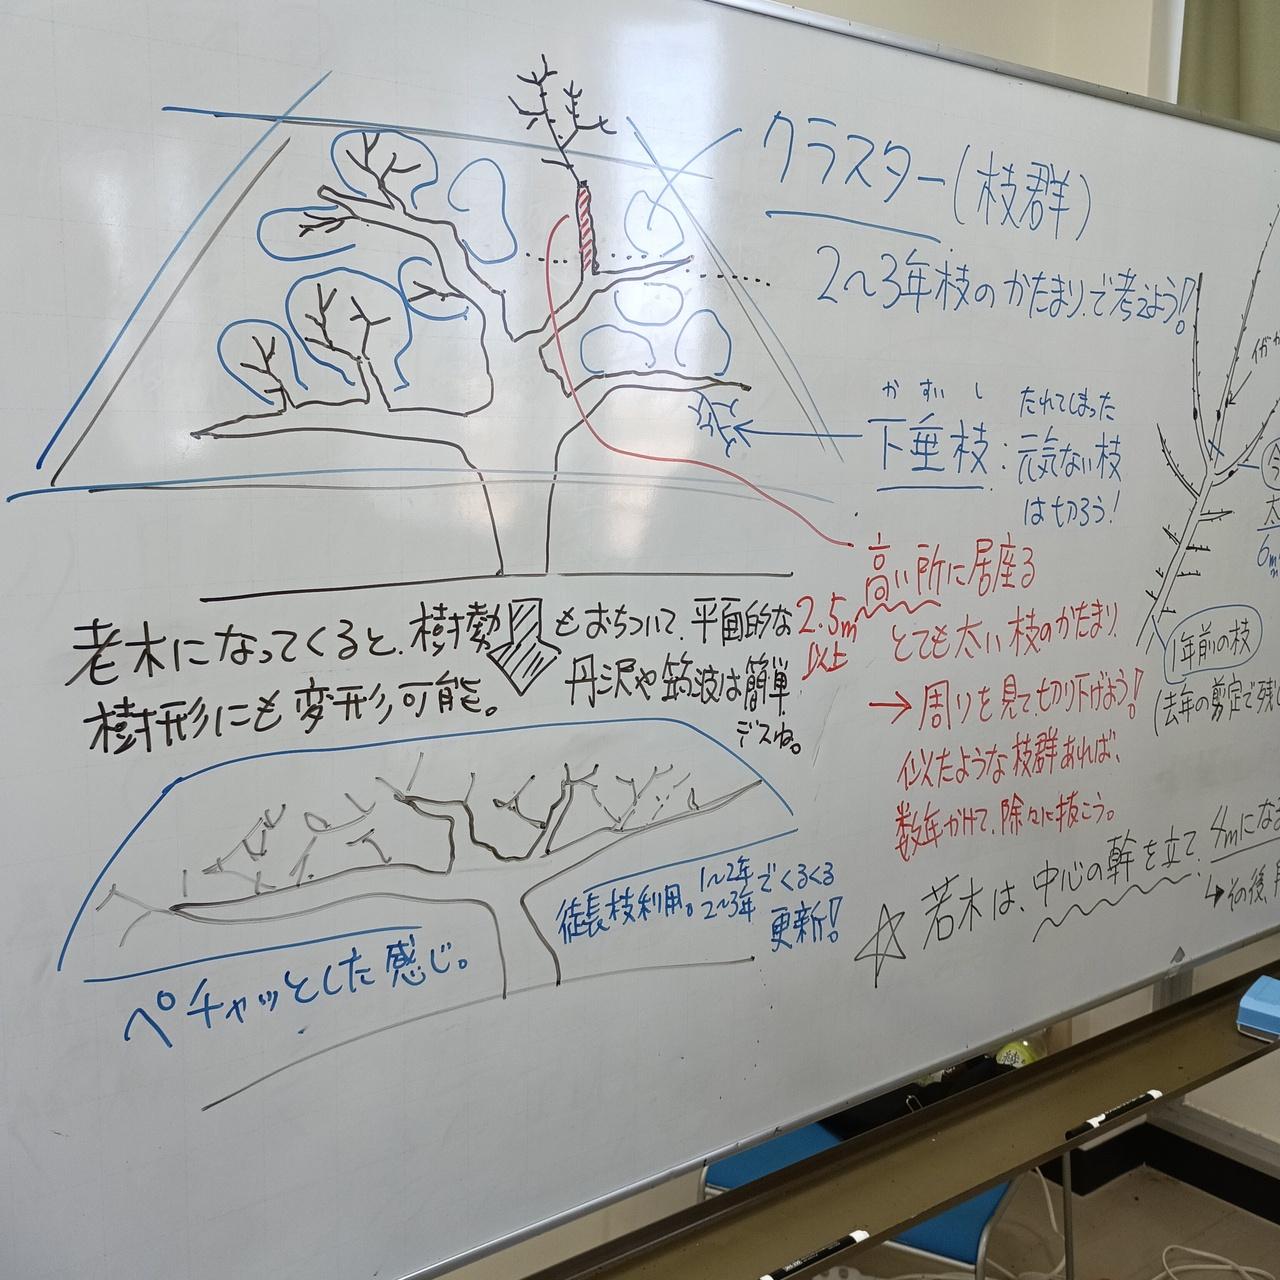 クラスター(枝群)
2〜3年枝のかたまりで考えよう!
かすいし
下垂枝:
たれてしまった
元気ない枝
は切ろう!
高い所に居座る
2.5m
以上
とても太い枝のかたまり
→周りを見て、切り下げよう!
似たような枝群あれば、
数年かけて、除々に抜こう。
老木になってくると、樹勢もおちついて、平面的な
樹形にも変形可能。
丹沢や筑波は簡単
デスね。
徒長枝利用。
1〜2年
2〜3年
でくるくる
更新!
ペチャッとした感じ。
☆若木は、中心の幹を立て、4mになる
↳その後、
1年前の枝
(去年の剪定で残
今
太
6m